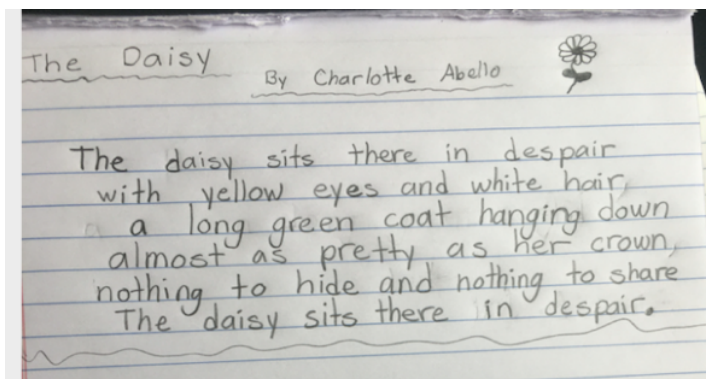 The Daisy
By Charlotte Abello
The daisy sits there in despair
with yellow eyes and white hair,
a long green coat hanging down
almost as pretty as her crown,
nothing to hide and nothing to share
The daisy sits there in despair.